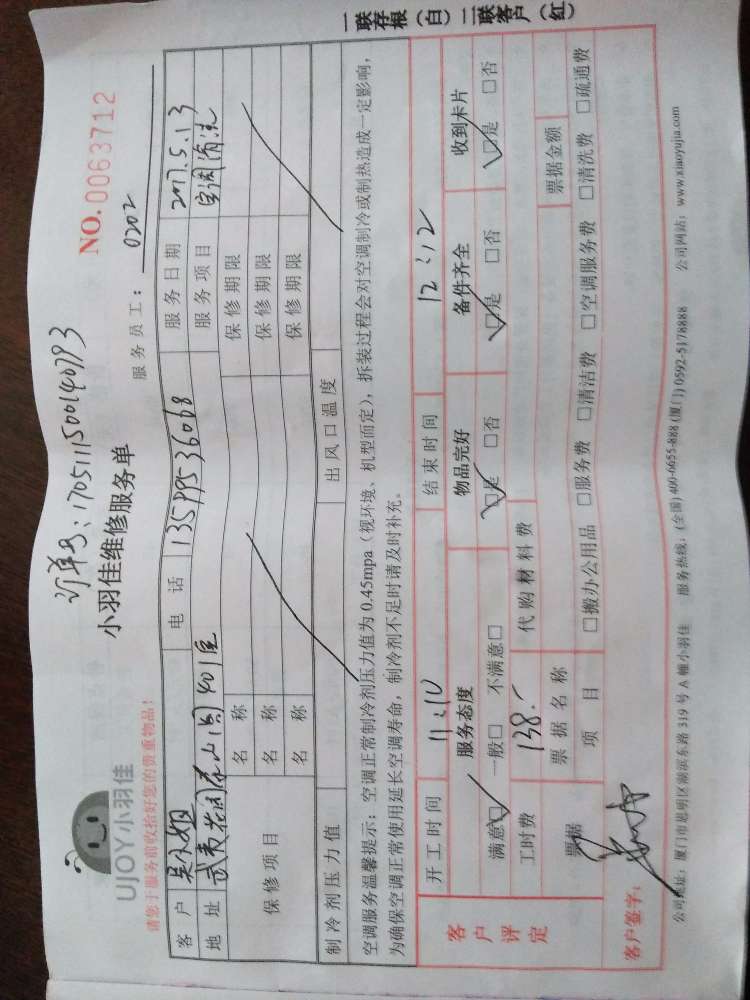 订单号：170511500140793
NO.0063712
UJOY小羽佳
小羽佳维修服务单
服务员工： 0202
请您于服务前收拾好您的贵重物品！
客 户 吴小姐 电 话 13599536068 服务日期 2017.5.13
地 址 401室 服务项目 空调清洗
保修项目 名 称 保修期限
名 称 保修期限
名 称 保修期限
制冷剂压力值 出风口温度
空调服务温馨提示：空调正常制冷剂压力值为0.45mpa（视环境、机型而定），拆装过程会对空调制冷或制热造成一定影响，
为确保空调正常使用延长空调寿命，制冷剂不足时请及时补充。
开工时间 11:10 结束时间 12:12
客户评定 服务态度 物品完好 备件齐全 收到卡片
满意□ 一般□ 不满意□ □是 □否 □是 □否 □是 □否
工时费 138.- 代购材料费
票据 票据名称 票据金额
项 目 □搬办公用品 □服务费 □清洁费 □空调服务费 □清洗费 □疏通费
客户签字：
公司地址：厦门市思明区湖滨东路319号A幢小羽佳 服务热线：(全国)400-6655-888 (厦门)0592-5178888 公司网站：www.xiaoyujia.com
一联存根（白） 二联客户（红）